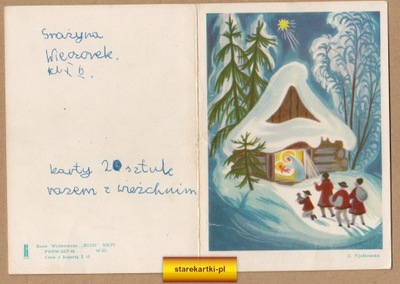 Grażyna
Wieczorek
kl I b.
karty 20 sztuk
razem z wieżchnim
Biuro Wydawnicze „RUCH"
Cena z kopertą 2 zł
starekartki-pl